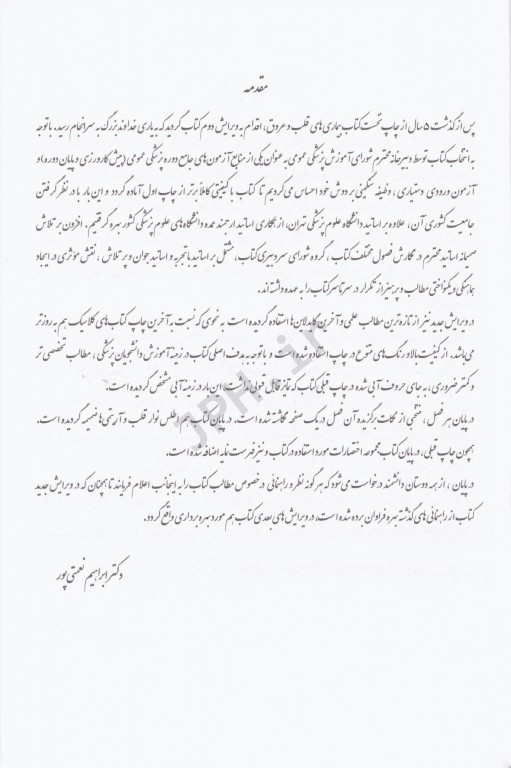 مقدمه
پس از گذشت ۵ سال از چاپ نخست کتاب بیماری های قلب و عروق، اقدام به ویرایش دوم کتاب گردید که به یاری خداوند بزرگ به سرانجام رسید. با توجه
به انتخاب کتاب توسط دبیرخانه محترم شورای آموزش پزشکی عمومی به عنوان یکی از منابع آزمون های جامع دوره پزشکی عمومی (پیش کارورزی و پایان دوره) و
آزمون ورودی دستیاری، وظیفه سنگینی بر دوش خود احساس می کردیم تا کتاب با کیفیتی کاملاً برتر از چاپ اول آماده گردد و این بار با در نظر گرفتن
جامعیت کشوری آن، علاوه بر اساتید دانشگاه علوم پزشکی تهران، از همکاری اساتید ارجمند عمده دانشگاه های علوم پزشکی کشور بهره گرفتیم. افزون بر تلاش
صمیمانه اساتید محترم در نگارش فصول مختلف کتاب، گروه شورای سردبیری کتاب، مشتمل بر اساتید با تجربه و اساتید جوان و پر تلاش، نقش مؤثری در ایجاد
هماهنگی و یکنواختی مطالب و پرهیز از تکرار در سرتاسر کتاب را به عهده داشته اند.
در ویرایش جدید نیز از تازه ترین مطالب علمی و آخرین گایدلاین ها استفاده گردیده است به نحوی که نسبت به آخرین چاپ کتاب های کلاسیک هم به روزتر
می باشد. از کیفیت بالا و رنگ های متنوع در چاپ استفاده شده است و با توجه به هدف اصلی کتاب در زمینه آموزش دانشجویان پزشکی، مطالب تخصصی تر
و کمتر ضروری، به جای حروف آبی شده در چاپ قبلی کتاب که تمایز قابل قبولی نداشت، این بار در زمینه آبی مشخص گردیده است.
در پایان هر فصل، منتخبی از نکات برگزیده آن فصل در یک صفحه گنجانده شده است. در پایان کتاب هم اطلس نوار قلب و آریتمی ها ضمیمه گردیده است.
همچون چاپ قبلی، در پایان کتاب مجموعه اختصارات مورد استفاده در کتاب و نیز فهرست نمایه اضافه شده است.
در پایان، از همه دوستان دانشمند درخواست می شود که هر گونه نظر و راهنمائی در خصوص مطالب کتاب را به اینجانب اعلام فرمایند تا همچنان که در ویرایش جدید
کتاب از راهنمائی های گذشته بهره فراوان برده شده است، در ویرایش های بعدی کتاب هم مورد بهره برداری واقع گردد.
دکتر ابراهیم نعمتی پور
JPH.ir